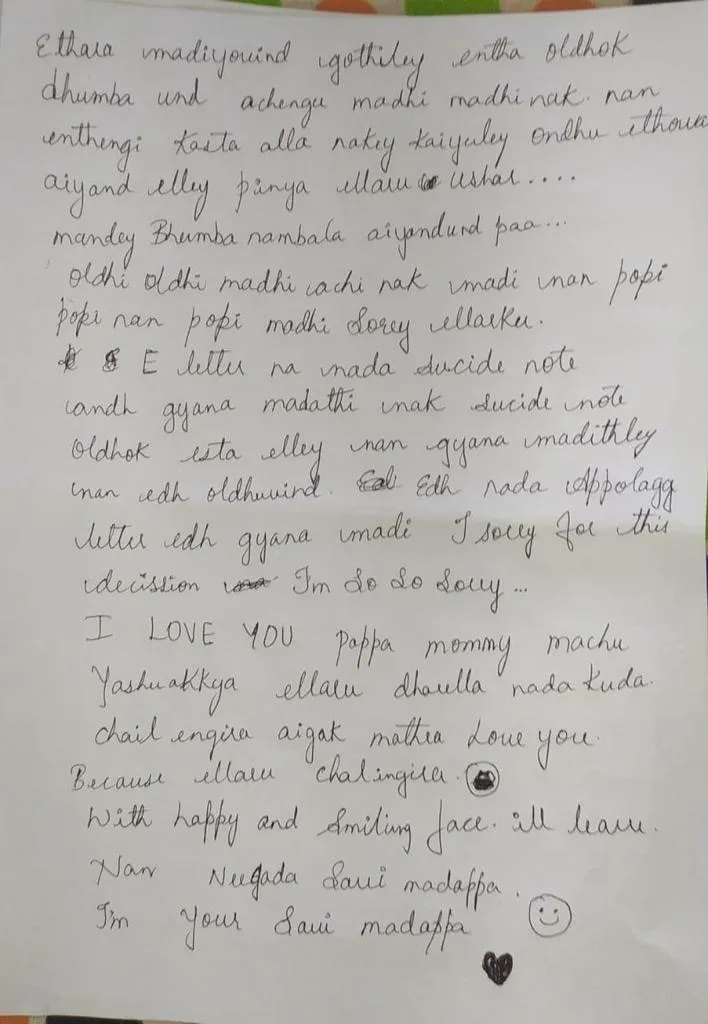 Ethara madiyouind gothiley entha oldhok
dhumba und achengu madhi madhi nak. nan
enthengi kasta alla nakey kaiyuley ondhu ethowa
aiyand elley punya ellaru ushar....
mandey Bhumba nambala aiyandund paa...
oldhi oldhi madhi cachi nak madi nan popi
popi nan popi madhi Sorey ellarku.
E letter na nada sucide note
candh gyana madathi nak sucide note
oldhok esta elley nan gyana madithley
nan edh oldhuvind. Edh nada Appolagg
letter edh gyana madi I sorry for this
decission I'm So So Sorry...
I LOVE YOU pappa mommy machu
Yashuakkya ellaru dhaulla nada kuda.
chail engira aigak mathra Love you.
Because ellaru chalingira.
With happy and Smiling face. ill leave.
Nan Neegada Savi madappa.
I'm your Savi madappa